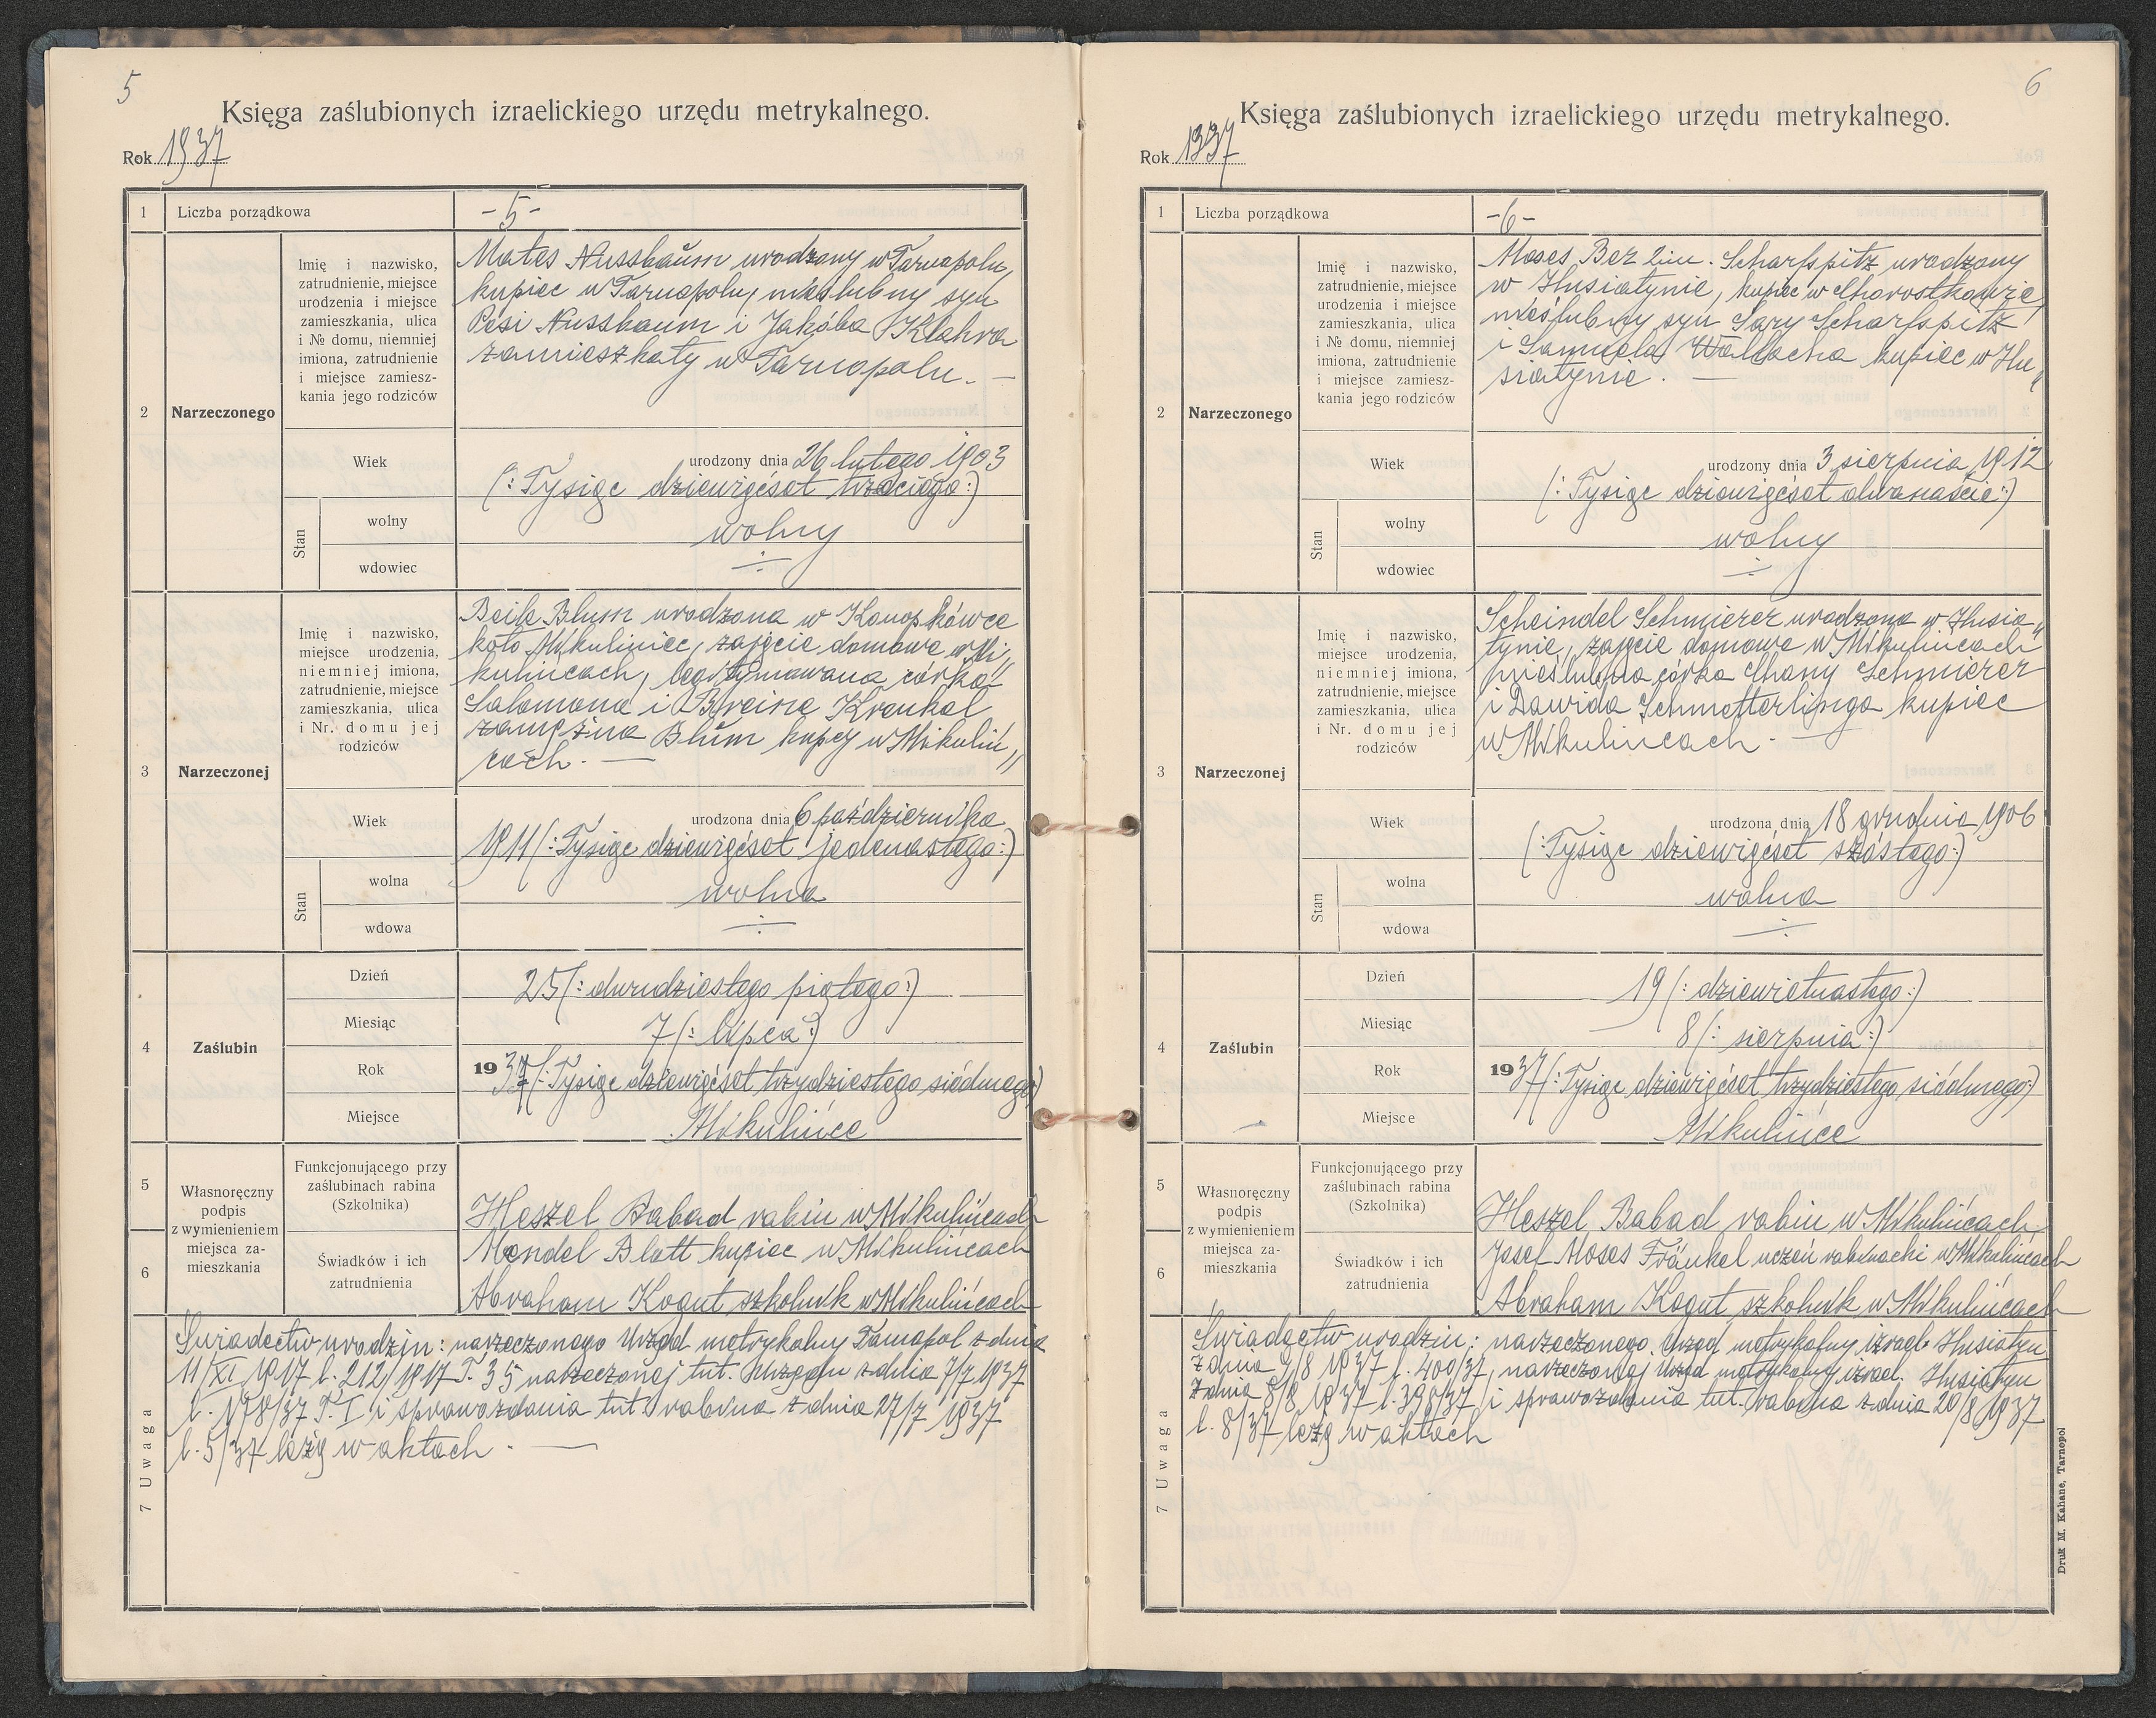 5
Księga zaślubionych izraelickiego urzędu metrykalnego.
Rok 1937
1 Liczba porządkowa -5-
2 Narzeczonego
Imię i nazwisko,
zatrudnienie, miejsce
urodzenia i miejsce
zamieszkania, ulica
i № domu, niemniej
imiona, zatrudnienie
i miejsce zamiesz-
kania jego rodziców
Mates Nussbaŭm urodzony w Tarnopolu,
kupiec w Tarnopolu, nieślubny syn
Pesi Nussbaum i Jakóba Klahra
zamieszkały w Tarnopolu. —
Wiek urodzony dnia 26 lutego 1903
(: Tysiąc dziewięćset trzeciego:)
Stan
wolny wolny
wdowiec
3 Narzeczonej
Imię i nazwisko,
miejsce urodzenia,
niemniej imiona,
zatrudnienie, miejsce
zamieszkania, ulica
i Nr. domu jej
rodziców
Beile Blum urodzona w Konopkówce
koło Mikuliniec, zajęcie domowe w Mi„
kulińcach, legitymowana córka
Salomona i Breine Kronkal
zamężna Blŭm kupcy w Mikuliń„
cach. —
Wiek urodzona dnia 6 października
1911 (: Tysiąc dziewięćset jedenastego:)
Stan
wolna wolna
wdowa
4 Zaślubin
Dzień 25 (: dwudziestego piątego:)
Miesiąc 7 (: lipca:)
Rok 1937 (: Tysiąc dziewięćset trzydziestego siódmego)
Miejsce Mikulińce
5
6
Własnoręczny
podpis
z wymienieniem
miejsca za-
mieszkania
Funkcjonującego przy
zaślubinach rabina
(Szkolnika)
Heszel Babad rabin w Mikulińcach
Świadków i ich
zatrudnienia
Mendel Blatt kupiec w Mikulińcach
Abraham Kogut szkolnik w Mikulińcach
7 Uwaga
Świadectwo urodzin: narzeczonego Urząd metrykalny Tarnopol z dnia
11/XI 1917 l. 212/1917 T. 35 narzeczonej tut. Urzędu z dnia 7/7 1937
l. 178/37 T. I i sprawozdania tut. rabina z dnia 27/7 1937
l. 5/37 leżą w aktach. —
6
Księga zaślubionych izraelickiego urzędu metrykalnego.
Rok 1937
1 Liczba porządkowa -6-
2 Narzeczonego
Imię i nazwisko,
zatrudnienie, miejsce
urodzenia i miejsce
zamieszkania, ulica
i № domu, niemniej
imiona, zatrudnienie
i miejsce zamiesz-
kania jego rodziców
Moses Ber 2im. Scharfspitz urodzony
w Husiatynie, kupiec w Chorostkowie,
nieślubny syn Sary Scharfspitz
i Samuela Wallacha kupiec w Hu„
siatynie. —
Wiek urodzony dnia 3 sierpnia 1912
(: Tysiąc dziewięćset dwanaście:)
Stan
wolny wolny
wdowiec
3 Narzeczonej
Imię i nazwisko,
miejsce urodzenia,
niemniej imiona,
zatrudnienie, miejsce
zamieszkania, ulica
i Nr. domu jej
rodziców
Scheindel Schmierer urodzona w Husia„
tynie, zajęcie domowe w Mikulińcach
nieślubna córka Chany Schmierer
i Dawida Schmetterlinga kupiec
w Mikulińcach. —
Wiek urodzona dnia 18 grudnia 1906
(: Tysiąc dziewięćset szóstego:)
Stan
wolna wolna
wdowa
4 Zaślubin
Dzień 19 (: dziewiętnastego:)
Miesiąc 8 (: sierpnia:)
Rok 1937 (: Tysiąc dziewięćset trzydziestego siódmego:)
Miejsce Mikulińce
5
6
Własnoręczny
podpis
z wymienieniem
miejsca za-
mieszkania
Funkcjonującego przy
zaślubinach rabina
(Szkolnika)
Heszel Babad rabin w Mikulińcach
Świadków i ich
zatrudnienia
Josef Moses Fränkel uczeń rabinacki w Mikulińcach
Abraham Kogut szkolnik w Mikulińcach
7 Uwaga
Świadectwo urodzin: narzeczonego Urząd metrykalny izrael. Husiatyn
z dnia 9/8 1937 l. 400/37, narzeczonej Urząd metrykalny izrael. Husiatyn
z dnia 8/8 1937 l. 398/37 i sprawozdania tut. rabina z dnia 20/8 1937
l. 8/37 leżą w aktach
Druk M. Kahane, Tarnopol